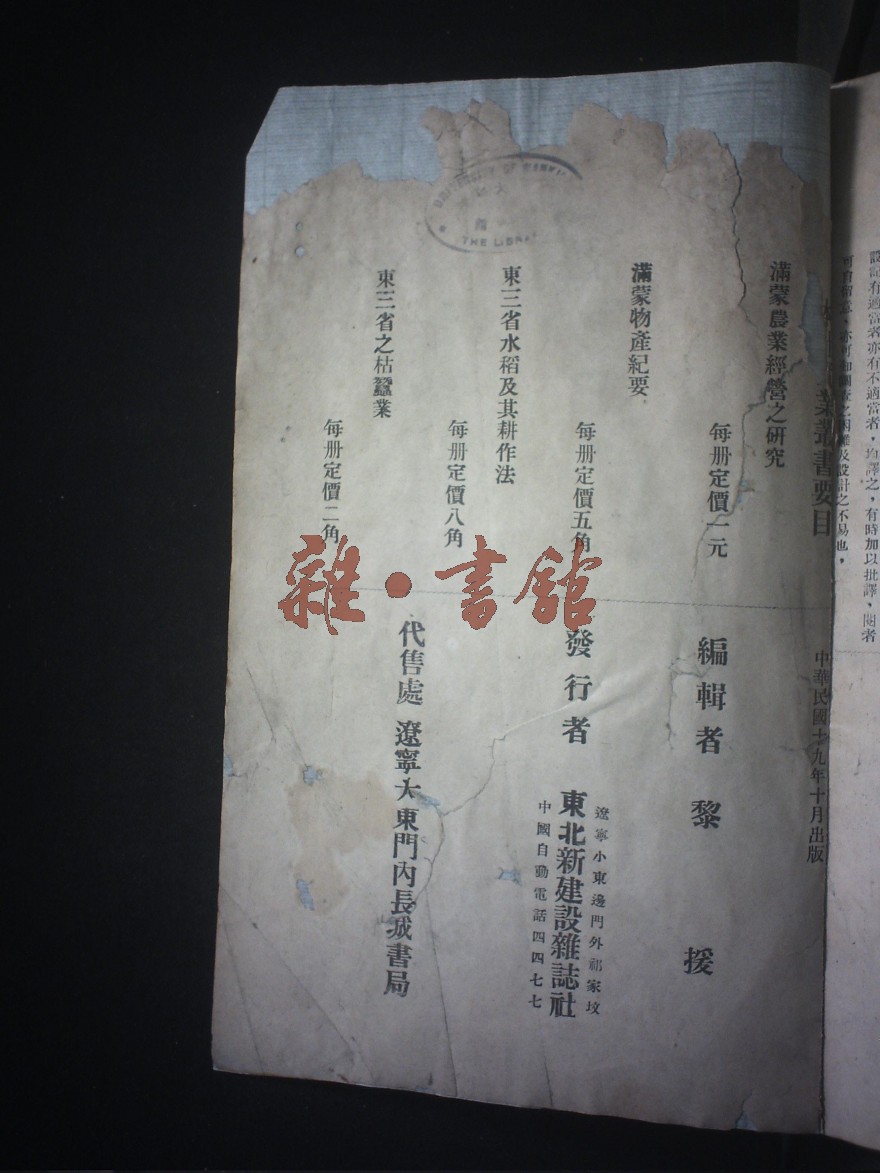 設記有適當者亦有不適當者，均譯之，有時加以批譯，閱者
之困難及設計之不易也，
業叢書要目
中華民國十九年十月出版
滿蒙農業經營之研究
每册定價一元
滿蒙物產紀要
每册定價五角
東三省水稻及其耕作法
每册定價八角
東三省之枯蠶業
每册定價二角
編輯者 黎 援
發行者 東北新建設雜誌社
遼寧小東邊門外祁家坟
中國自動電話四四七七
代售處 遼寧大東門內長城書局
THE LIBRARY
雜·書館